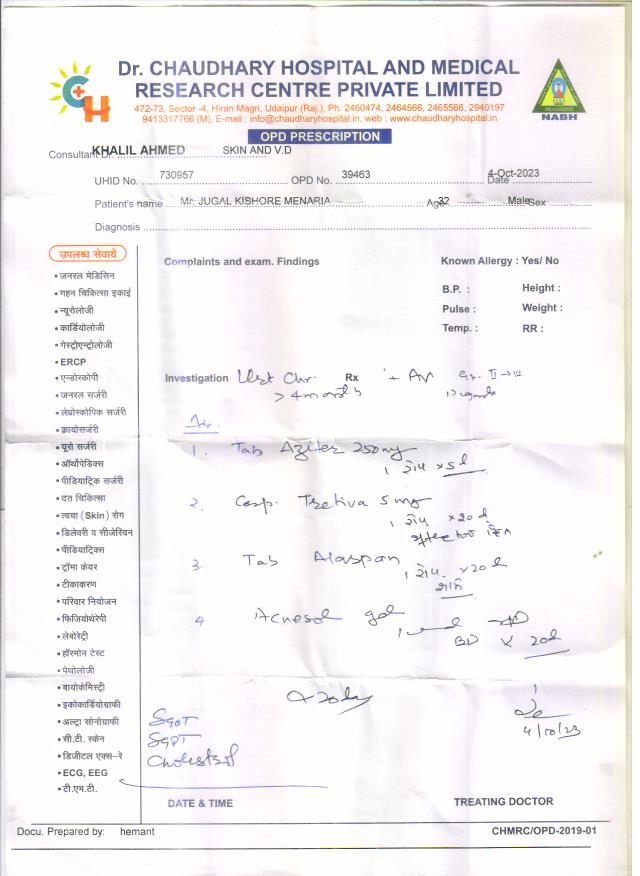 Dr. CHAUDHARY HOSPITAL AND MEDICAL
RESEARCH CENTRE PRIVATE LIMITED
472-73, Sector -4, Hiran Magri, Udaipur (Raj.), Ph. 2460474, 2464566, 2465566, 2940197
9413317766 (M), E-mail : info@chaudharyhospital.in, web : www.chaudharyhospital.in
CH
NABH
OPD PRESCRIPTION
Consultant Dr. KHALIL AHMED SKIN AND V.D
UHID No. 730957 OPD No. 39463 Date 4-Oct-2023
Patient's name Mr. JUGAL KISHORE MENARIA Age 32 Male Sex
Diagnosis
उपलब्ध सेवायें
Complaints and exam. Findings Known Allergy : Yes/ No
B.P. : Height :
Pulse : Weight :
Temp. : RR :
• जनरल मेडिसिन
• गहन चिकित्सा इकाई
• न्यूरोलोजी
• कार्डियोलोजी
• गेस्ट्रोएन्ट्रोलोजी
• ERCP
• एन्डोस्कोपी
• जनरल सर्जरी
• लेप्रोस्कोपिक सर्जरी
• क्रायोसर्जरी
• यूरो सर्जरी
• ऑर्थोपेडिक्स
• पीडियाट्रिक सर्जरी
• दंत चिकित्सा
• त्वचा (Skin) रोग
• डिलेवरी व सीजेरियन
• पीडियाट्रिक्स
• ट्रॉमा केयर
• टीकाकरण
• परिवार नियोजन
• फिजियोथेरेपी
• लेबोरेट्री
• हॉरमोन टेस्ट
• पेथोलोजी
• बायोकेमिस्ट्री
• इकोकार्डियोग्राफी
• अल्ट्रा सोनोग्राफी
• सी.टी. स्केन
• डिजीटल एक्स-रे
• ECG, EEG
• टी.एम.टी.
Investigation Rx + AV Gr. II → III
> 4 months
1. Tab Aziter 250mg
1 रोज x 5d
2. Cap. Tretiva 5 mg
1 रोज x 20 d
3. Tab Alaspan
1 रोज x 20 d
4 Acnesol gel
BD x 20d
20 day
4/10/23
SGOT
SGPT
Cholesterol
DATE & TIME TREATING DOCTOR
Docu. Prepared by: hemant CHMRC/OPD-2019-01